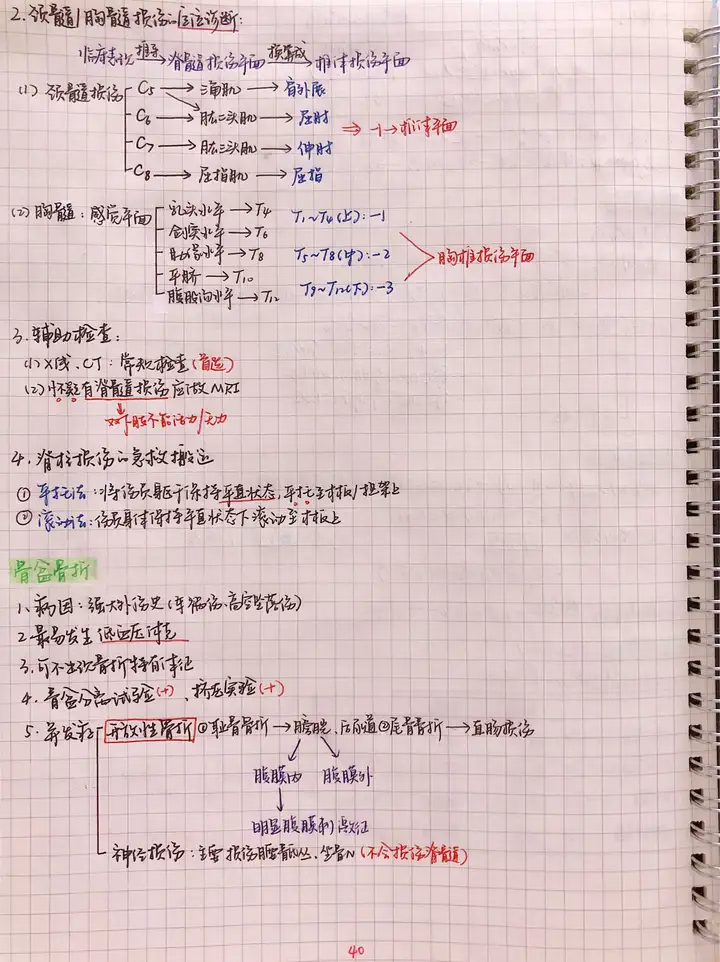 2.颈髓/胸髓损伤的定位诊断:
临床表现 推导→ 脊髓损伤平面 换算成→ 椎体损伤平面
(1) 颈髓损伤 C5 → 三角肌 → 肩外展
C6 → 肱二头肌 → 屈肘 ⇒ -1→椎体平面
C7 → 肱三头肌 → 伸肘
C8 → 屈指肌 → 屈指
(2) 胸髓:感觉平面 乳头水平→T4 T1~T4(上):-1
剑突水平→T6
肋缘水平→T8 T5~T8(中):-2 胸椎损伤平面
平脐→T10
腹股沟水平→T12 T9~T12(下):-3
3.辅助检查:
(1)X线、CT:常规检查(首选)
(2)怀疑有脊髓损伤应做MRI
↓
双下肢不能活动/无力
4.脊柱损伤的急救搬运
① 平托法:将伤员躯干保持平直状态,平托至木板/担架上
② 滚动法:伤员身体保持平直状态下滚动至木板上
骨盆骨折
1.病因:强大外伤史(车祸伤、高空坠落伤)
2.最易发生低血压休克
3.可不出现骨折特有体征
4.骨盆分离试验(+)、挤压实验(+)
5.并发症 开放性骨折 ①耻骨骨折→膀胱、后尿道 ②尾骨骨折→直肠损伤
腹膜内 腹膜外
↓
明显腹膜刺激征
神经损伤:主要损伤腰骶丛、坐骨N(不会损伤脊髓)
40